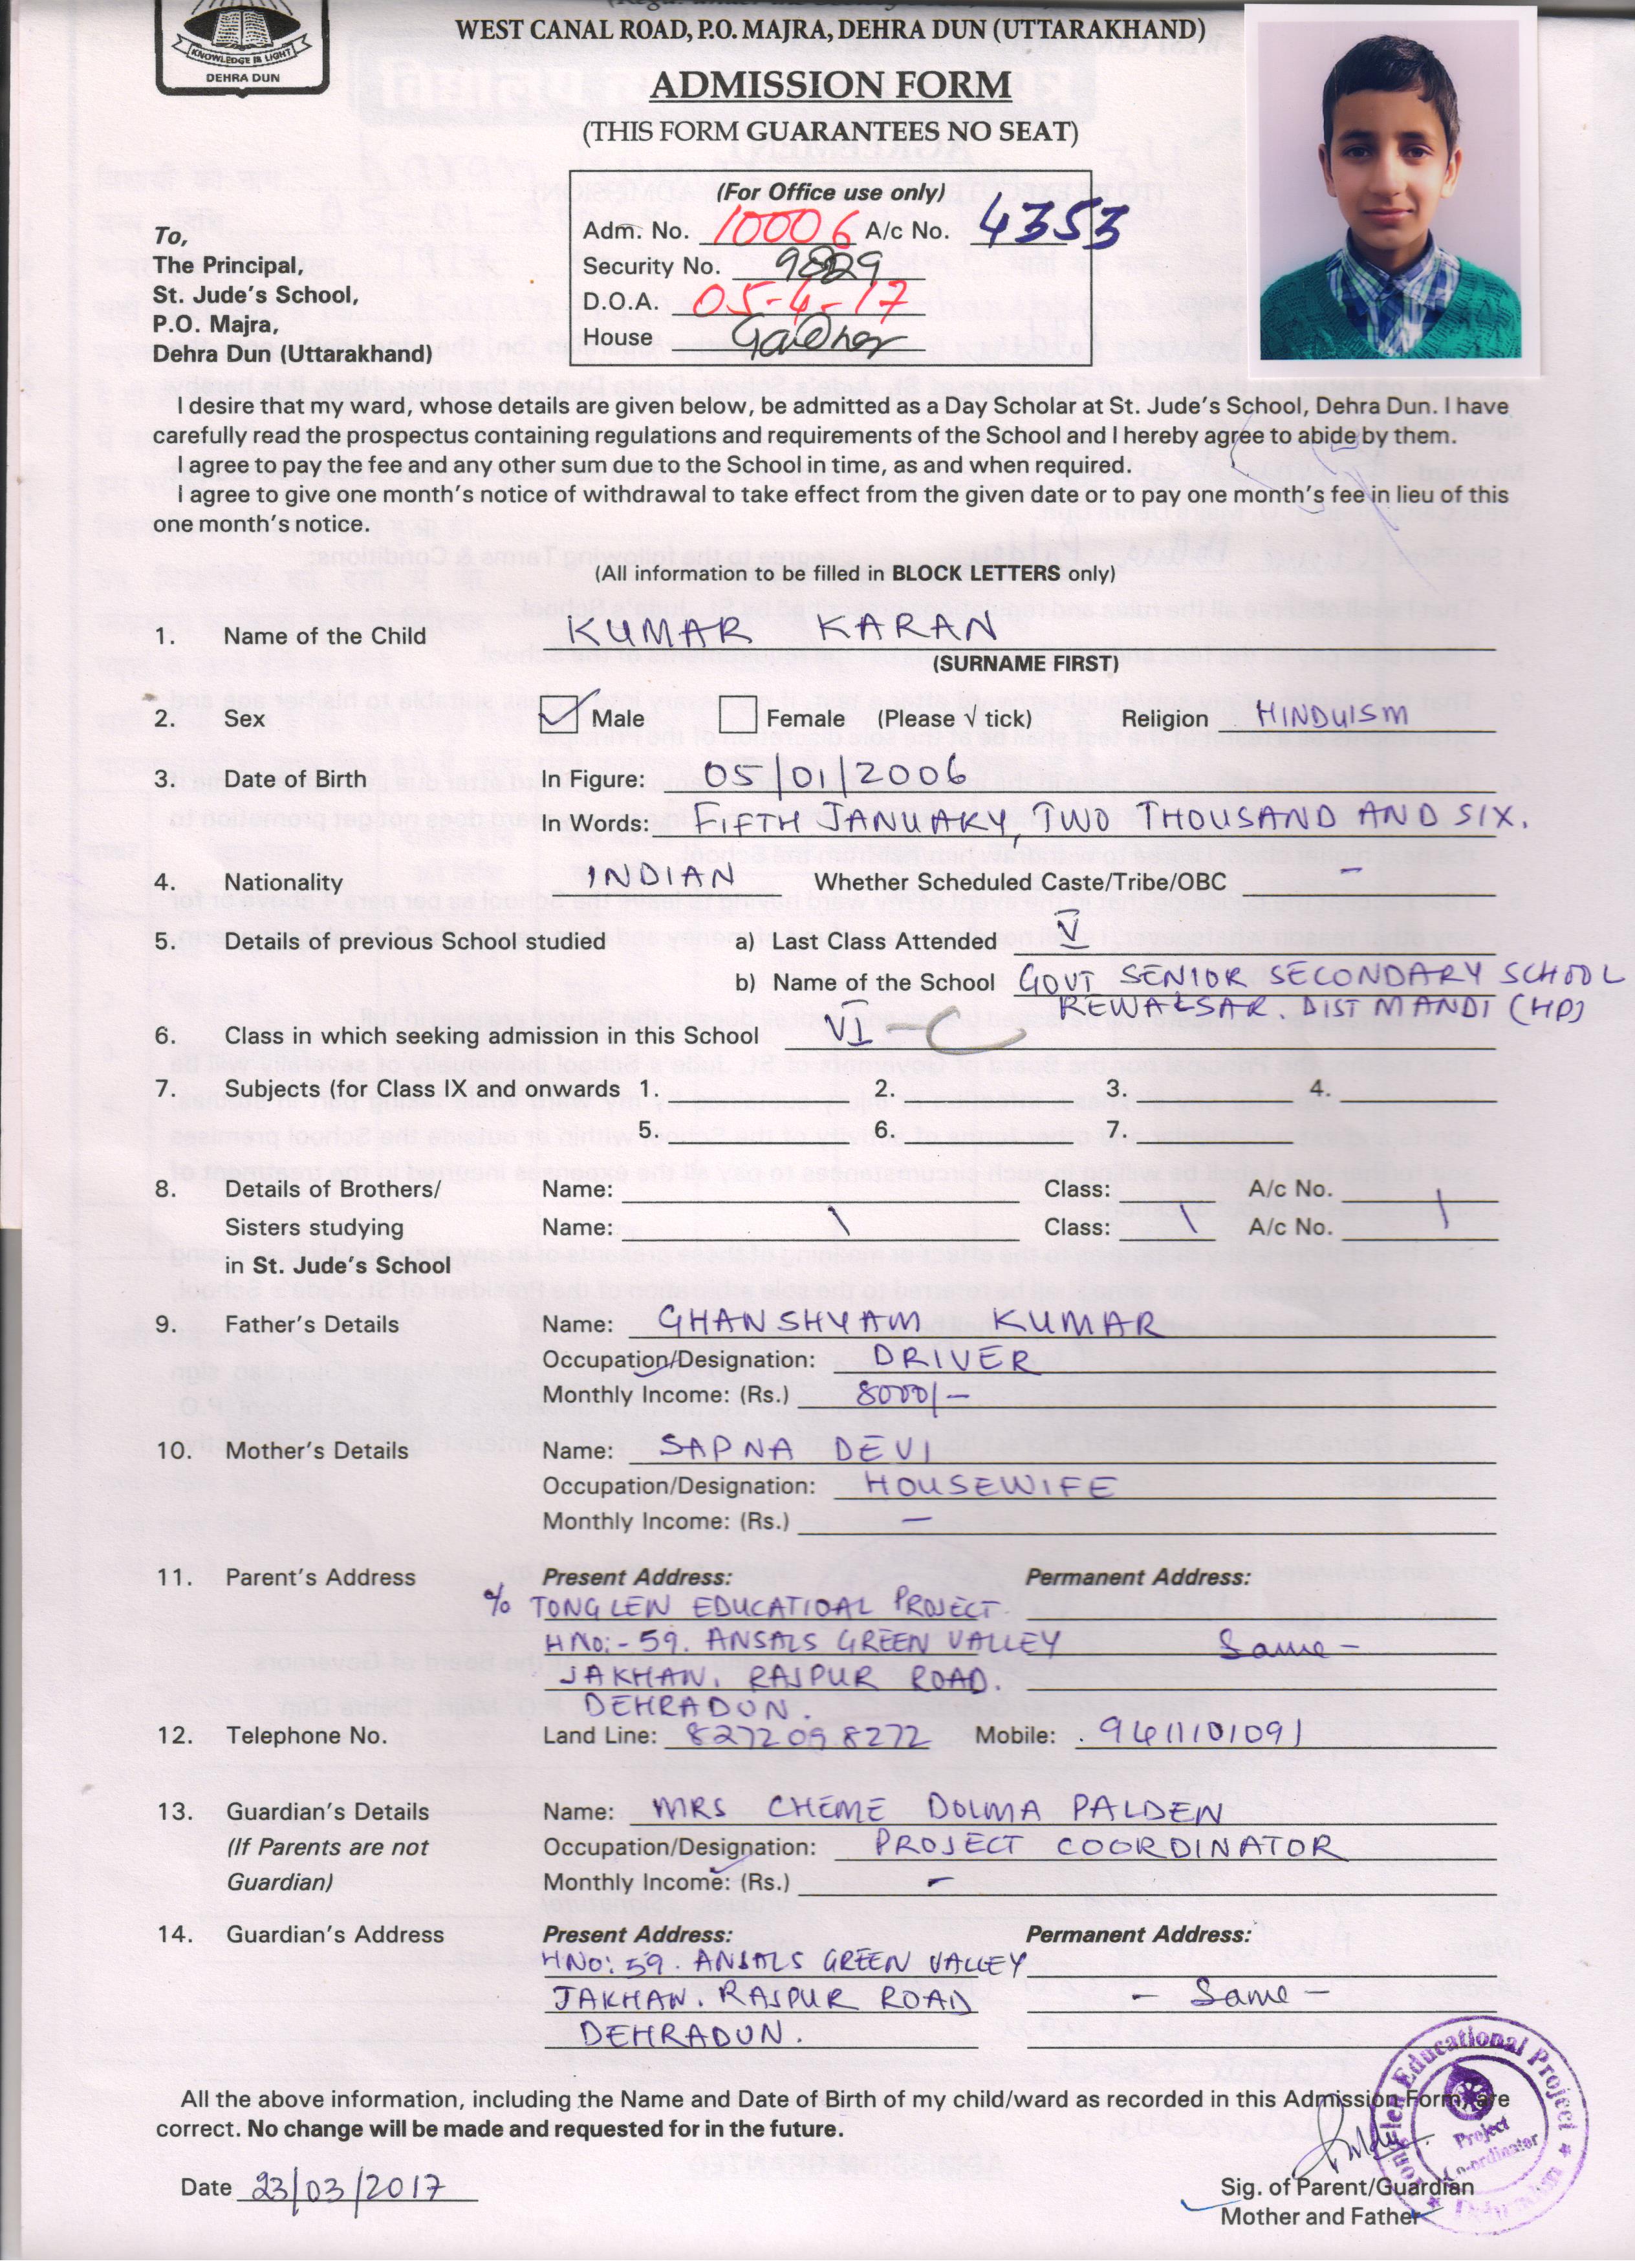 KNOWLEDGE IS LIGHT
DEHRA DUN
WEST CANAL ROAD, P.O. MAJRA, DEHRA DUN (UTTARAKHAND)
ADMISSION FORM
(THIS FORM GUARANTEES NO SEAT)
(For Office use only)
Adm. No. 10006 A/c No. 4353
Security No. 9829
D.O.A. 05-4-17
House
To,
The Principal,
St. Jude's School,
P.O. Majra,
Dehra Dun (Uttarakhand)
I desire that my ward, whose details are given below, be admitted as a Day Scholar at St. Jude's School, Dehra Dun. I have
carefully read the prospectus containing regulations and requirements of the School and I hereby agree to abide by them.
I agree to pay the fee and any other sum due to the School in time, as and when required.
I agree to give one month's notice of withdrawal to take effect from the given date or to pay one month's fee in lieu of this
one month's notice.
(All information to be filled in BLOCK LETTERS only)
1. Name of the Child KUMAR KARAN
(SURNAME FIRST)
2. Sex Male Female (Please √ tick) Religion HINDUISM
3. Date of Birth In Figure: 05/01/2006
In Words: FIFTH JANUARY, TWO THOUSAND AND SIX.
4. Nationality INDIAN Whether Scheduled Caste/Tribe/OBC -
5. Details of previous School studied a) Last Class Attended V
b) Name of the School GOVT SENIOR SECONDARY SCHOOL
REWALSAR. DIST MANDI (HP)
6. Class in which seeking admission in this School VI - C
7. Subjects (for Class IX and onwards 1. 2. 3. 4.
5. 6. 7.
8. Details of Brothers/ Name: Class: A/c No.
Sisters studying Name: \ Class: \ A/c No. \
in St. Jude's School
9. Father's Details Name: GHANSHYAM KUMAR
Occupation/Designation: DRIVER
Monthly Income: (Rs.) 8000/-
10. Mother's Details Name: SAPNA DEVI
Occupation/Designation: HOUSEWIFE
Monthly Income: (Rs.) -
11. Parent's Address Present Address: Permanent Address:
% TONGLEN EDUCATIOAL PROJECT
HNO:- 59. ANSALS GREEN VALLEY Same -
JAKHAN. RAJPUR ROAD.
DEHRADUN.
12. Telephone No. Land Line: 8272098272 Mobile: . 9411101091
13. Guardian's Details Name: MRS CHEME DOLMA PALDEN
(If Parents are not Occupation/Designation: PROJECT COORDINATOR
Guardian) Monthly Income: (Rs.) -
14. Guardian's Address Present Address: Permanent Address:
HNO: 59. ANSALS GREEN VALLEY
JAKHAN. RAJPUR ROAD - Same -
DEHRADUN.
All the above information, including the Name and Date of Birth of my child/ward as recorded in this Admission Form are
correct. No change will be made and requested for in the future.
Date 23/03/2017
Sig. of Parent/Guardian
Mother and Father
Tong-len Educational Project
Project
Co-ordinator
Dehradun